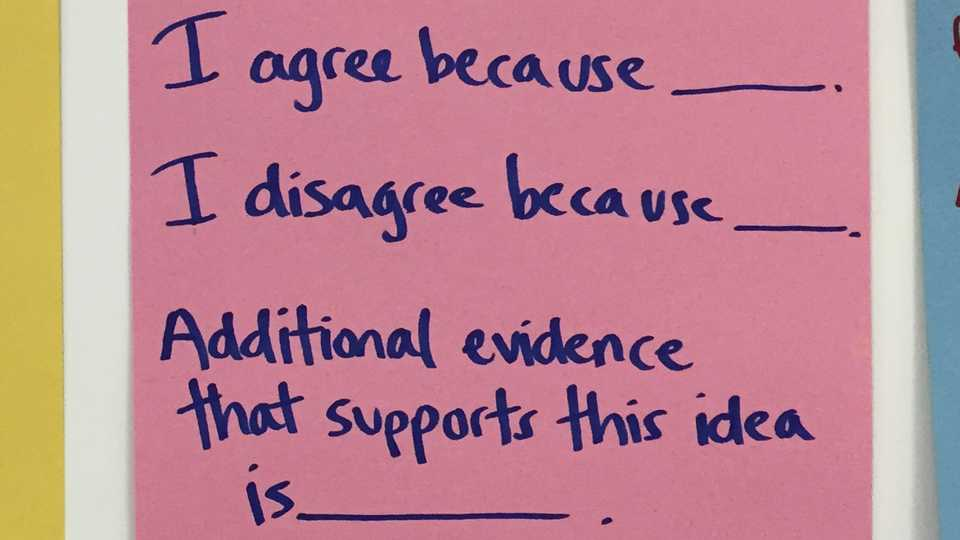 I agree because ______.
I disagree because ____.
Additional evidence
that supports this idea
is__________.